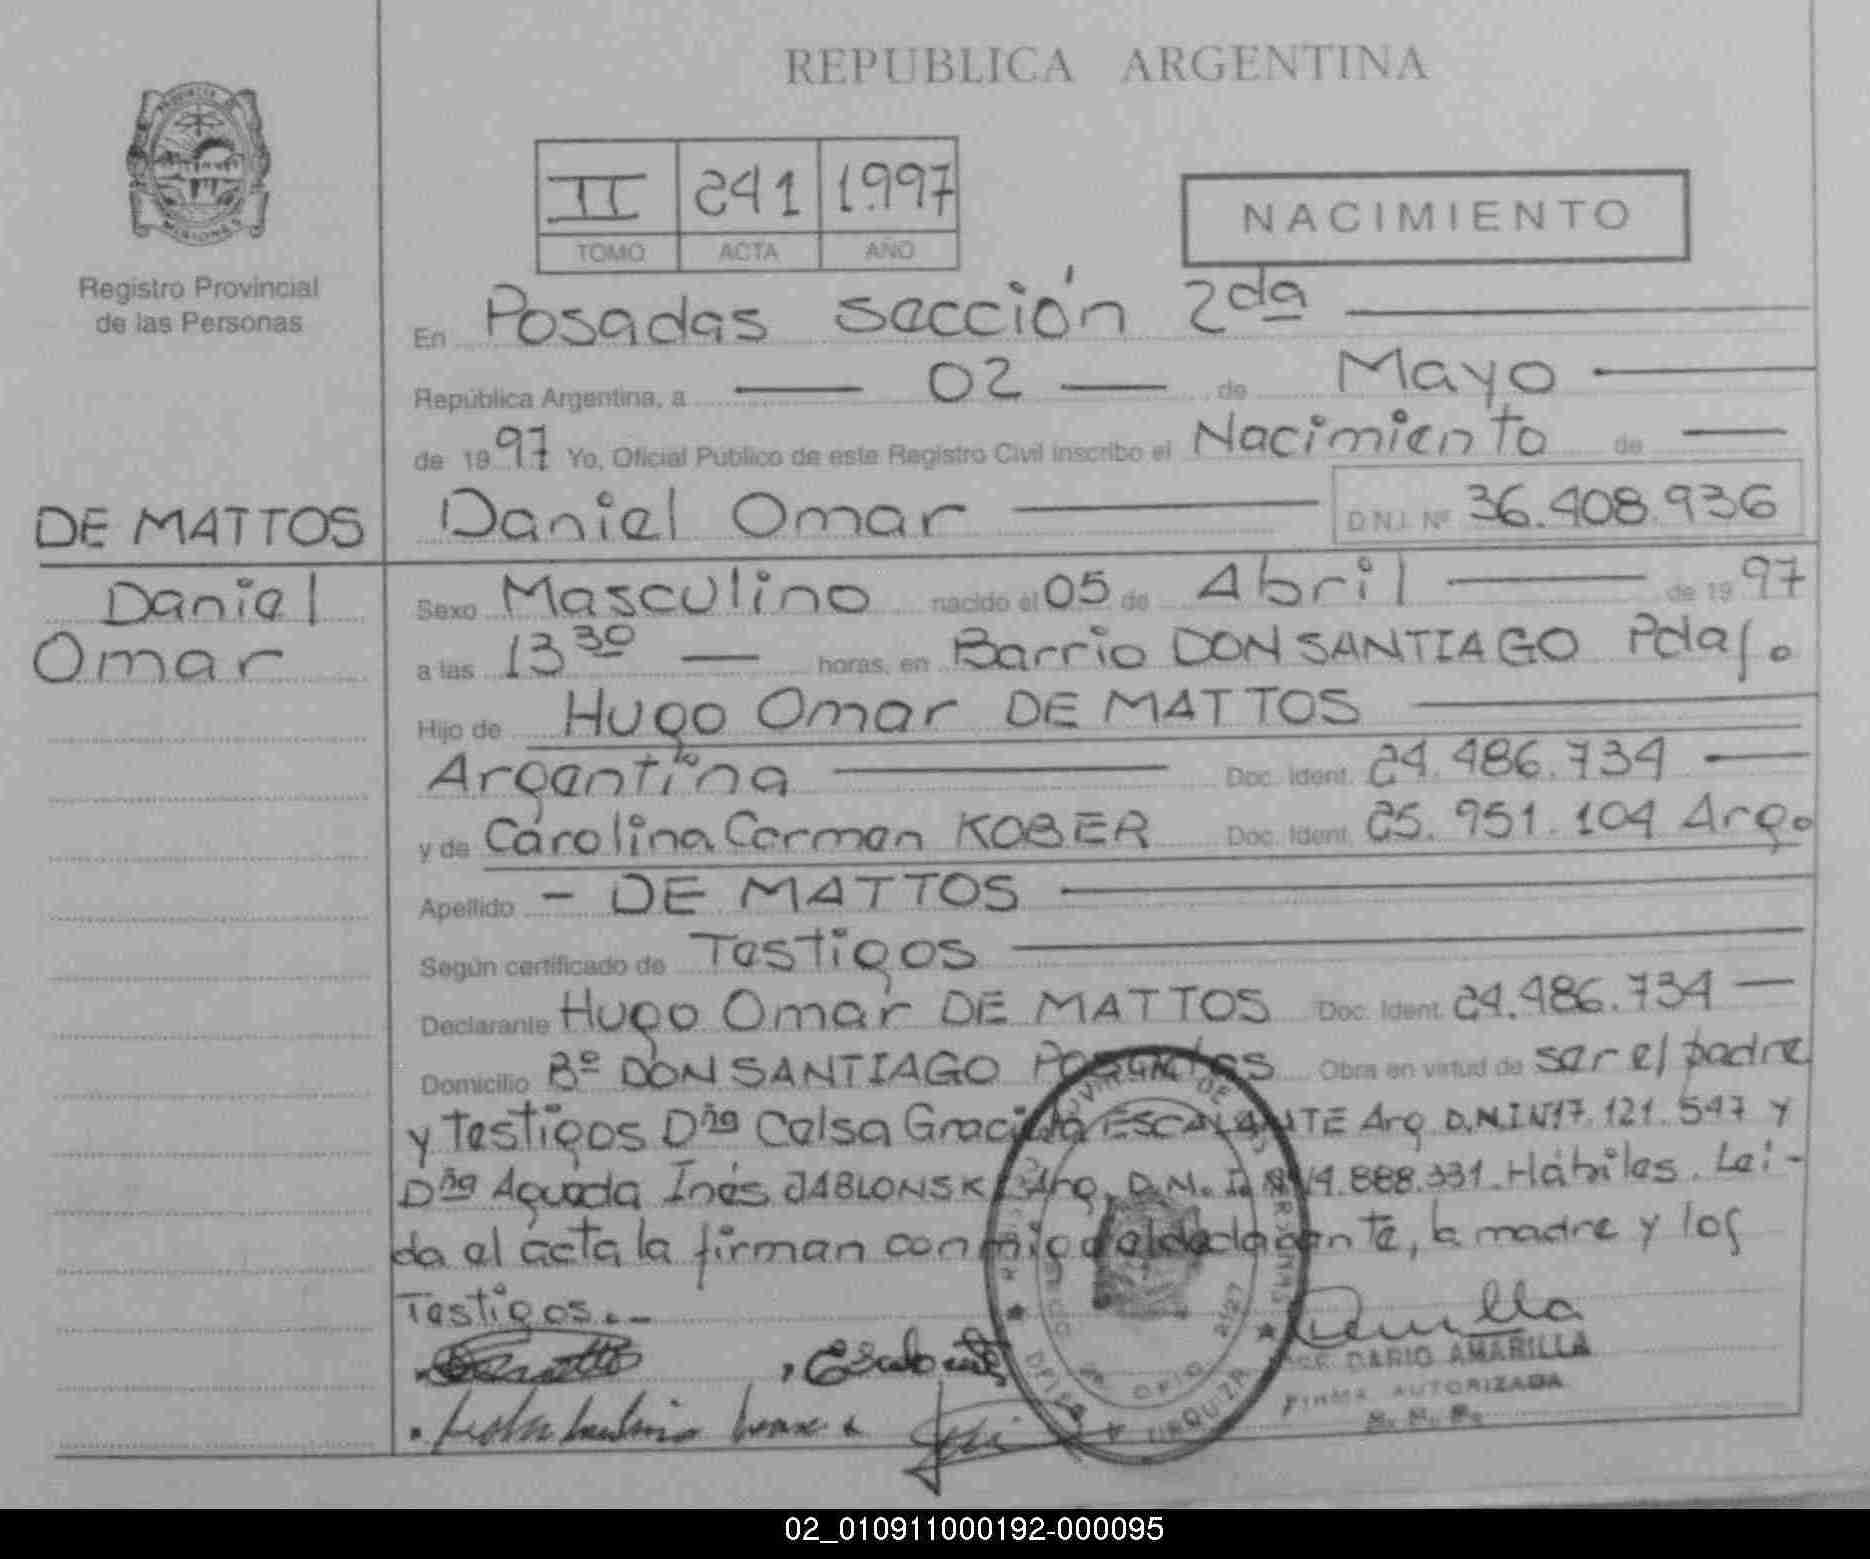 REPUBLICA ARGENTINA
PROVINCIA DE
MISIONES
Registro Provincial
de las Personas
II 241 1.997
TOMO ACTA AÑO
NACIMIENTO
En Posadas sección 2da
República Argentina, a 02 de Mayo
de 1997 Yo, Oficial Publico de este Registro Civil inscribo el Nacimiento de
DE MATTOS
Daniel
Omar
Daniel Omar D.N.I. Nº 36.408.936
Sexo Masculino nacido el 05 de Abril de 1997
a las 13 30 horas, en Barrio DON SANTIAGO Pdas.
Hijo de Hugo Omar DE MATTOS
Argentina Doc. Ident. 24.486.734
y de Carolina Carmen KOBER Doc. Ident. 25.951.104 Arg.
Apellido - DE MATTOS
Según certificado de Testigos
Declarante Hugo Omar DE MATTOS Doc. Ident. 24.486.734
Domicilio Bº DON SANTIAGO Posadas Obra en virtud de ser el padre
y testigos Dña Celsa Graciela ESCALANTE Arg D.N.I Nº17.121.547 y
Dña Agueda Inés JABLONSKI Arg. D.N.I. Nº14.888.331. Hábiles. Lei-
da el acta la firman conmigo el declarante, la madre y los
Testigos.-
Escalante
DARIO AMARILLA
FIRMA AUTORIZADA
URQUIZA
02_010911000192-000095